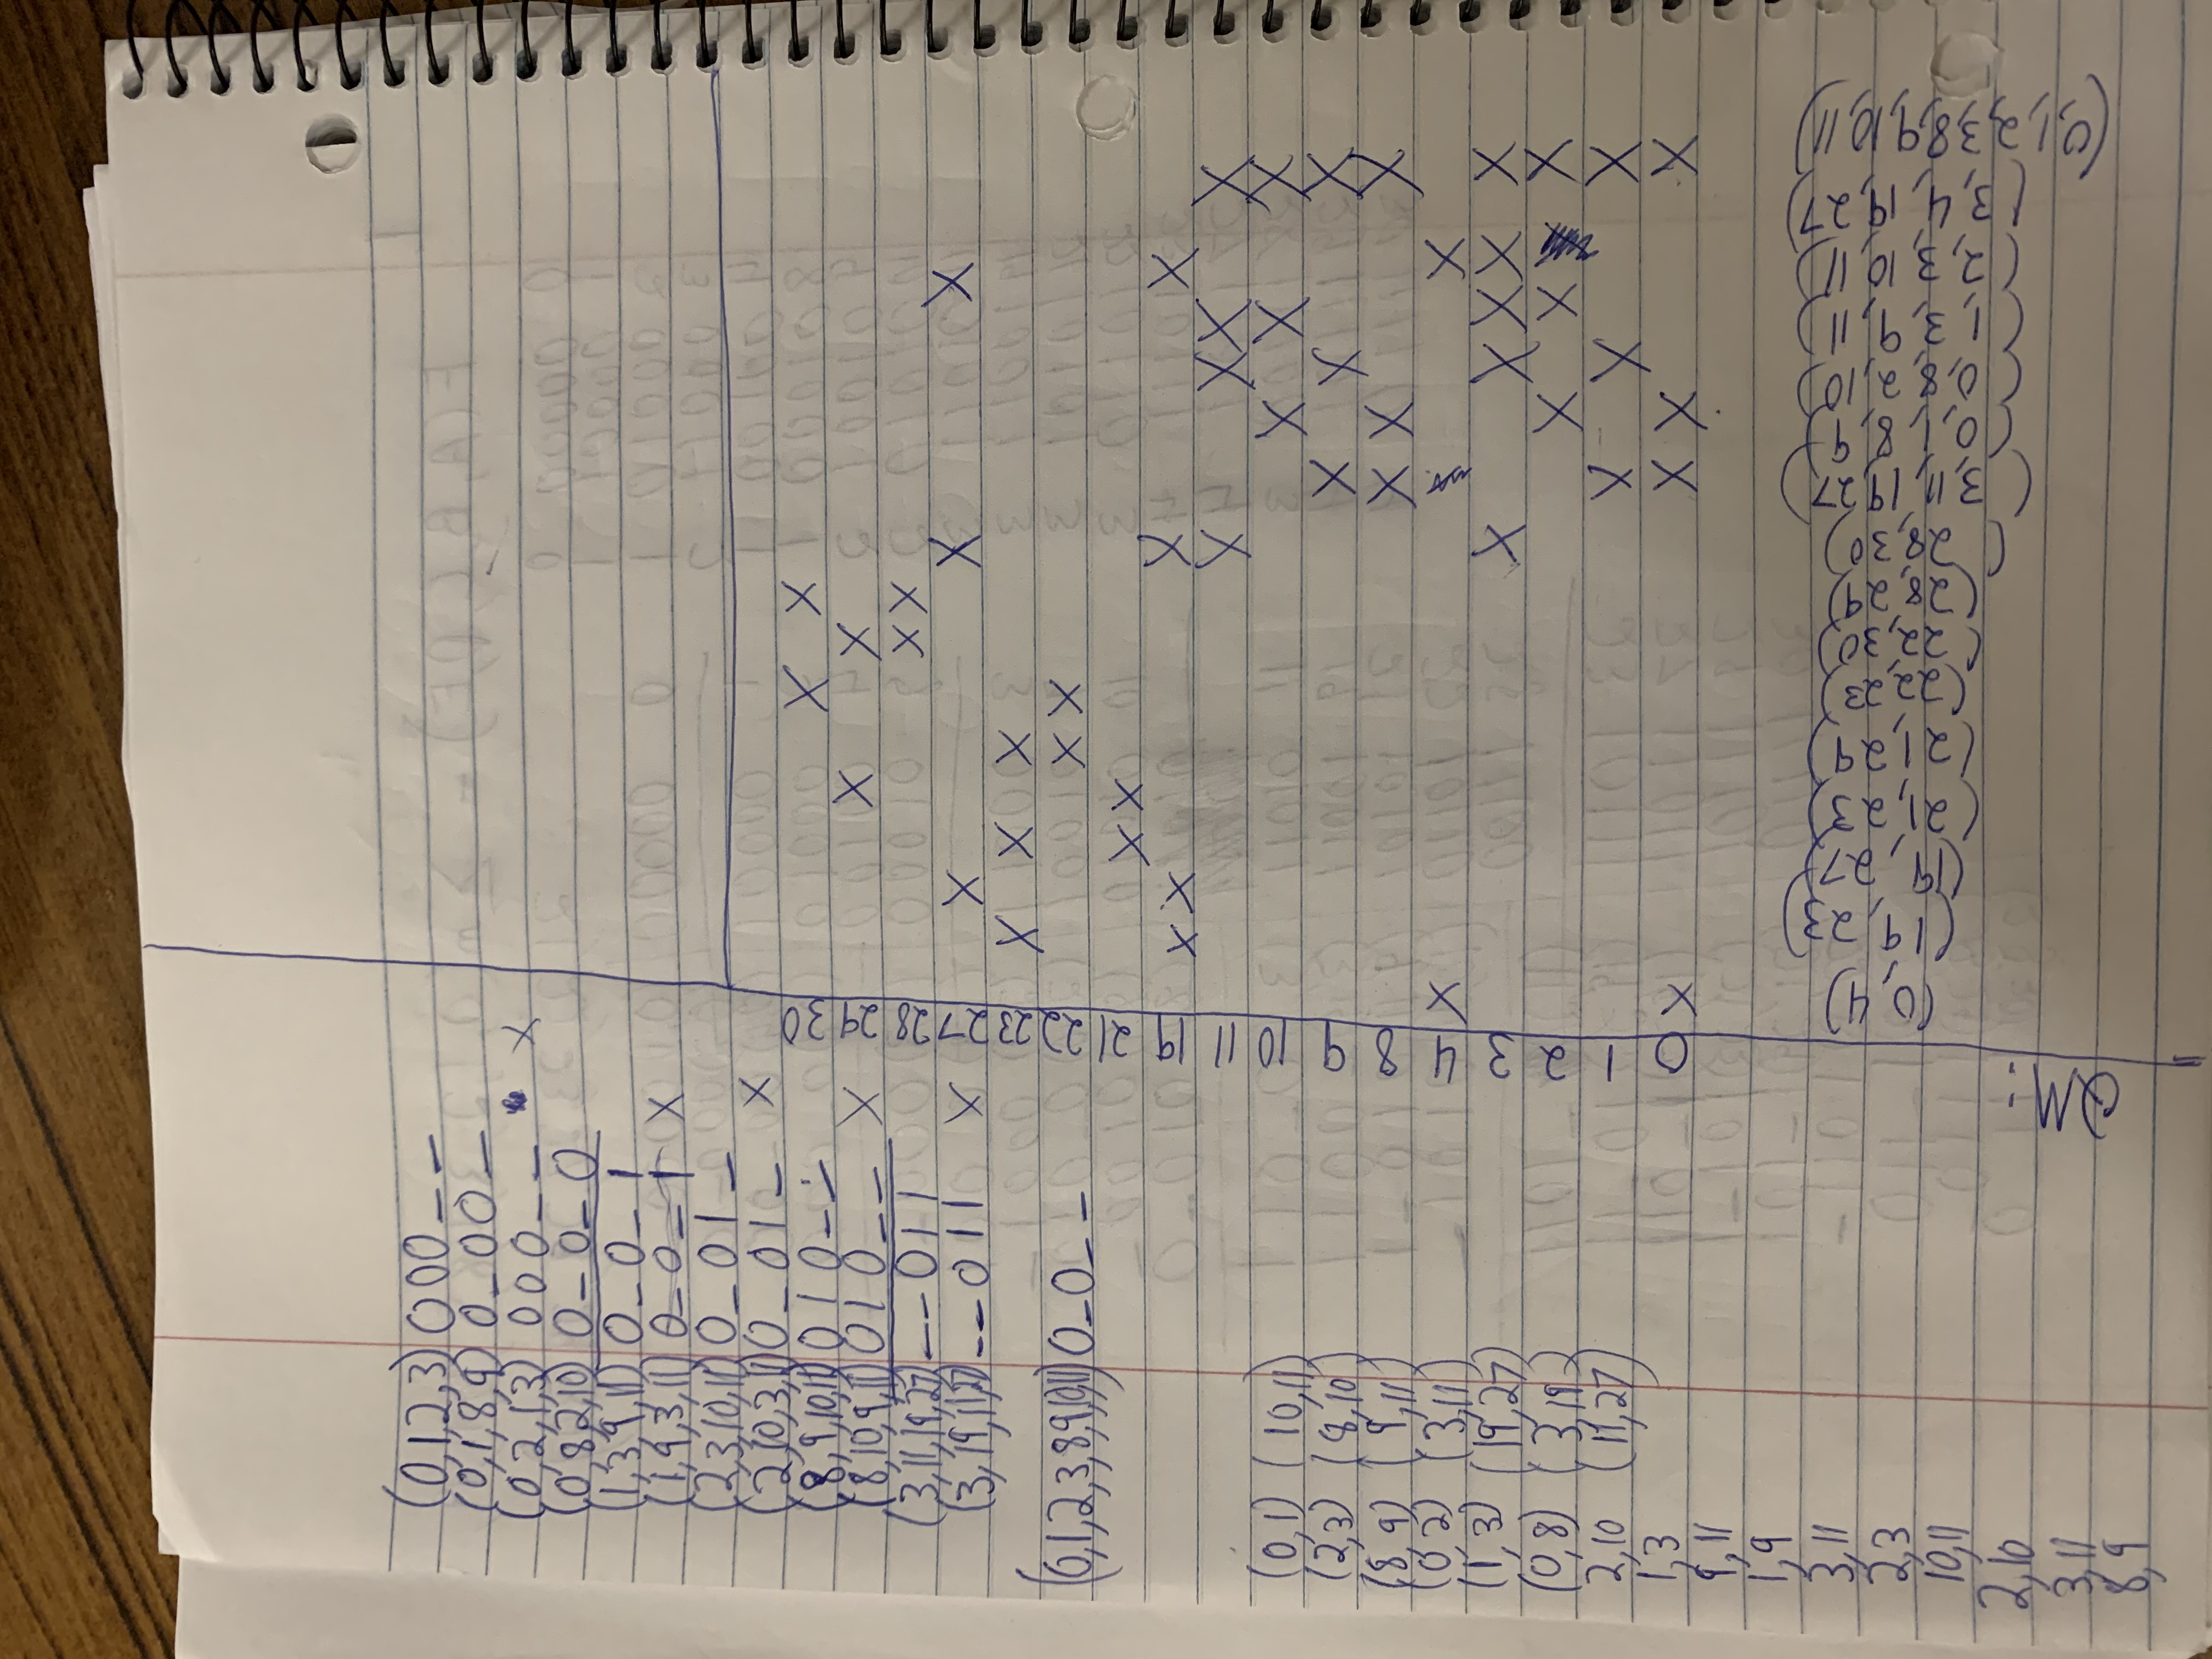 (0,1,2,3) 000__
(0,1,8,9) 0_00_
(0,2,1,3) 000__ X
(0,8,2,10) 0_0_0
(1,3,9,11) 0_0_1
(1,9,3,11) 0_0_1 X
(2,3,10,11) 0_01_
(2,10,3,11) 0_01_ X
(8,9,10,11) 010__
(8,10,9,11) 010__ X
(3,11,19,27) __011
(3,19,11,27) __011 X
(0,1,2,3,8,9,10,11) 0_0__
(0,1) (10,11)
(2,3) (8,10)
(8,9) (9,11)
(0,2) (3,11)
(1,3) (19,27)
(0,8) (3,19)
2,10 (11,27)
1,3
9,11
1,9
3,11
2,3
10,11
2,10
3,11
8,9
QM: 0 1 2 3 4 8 9 10 11 19 21 22 23 27 28 29 30
(0,4) X X
(19,23) X X
(19,27) X X
(21,23) X X
(21,29) X X
(22,23) X X
(22,30) X X
(28,29) X X
(28,30) X X
(3,11,19,27) X X X X
(0,1,8,9) X X X X
(0,8,2,10) X X X X
(1,3,9,11) X X X X
(2,3,10,11) X X X X
(3,4,19,27) X X X X
(0,1,2,3,8,9,10,11) X X X X X X X X